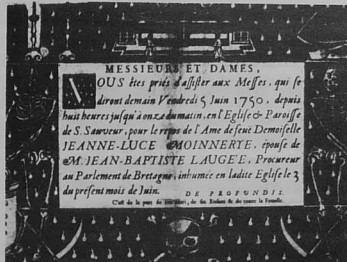 MESSIEURS ET DAMES,
VOUS êtes priés d'assister aux Messes, qui se
diront demain Vendredi 5 Juin 1750, depuis
huit heures jusqu'à onze du matin, en l'Eglise & Paroisse
de S. Sauveur, pour le repos de l'Ame de feuë Demoiselle
JEANNE-LUCE MOINNERTE, épouse de
M. JEAN-BAPTISTE LAUGÉE, Procureur
au Parlement de Bretagne, inhumée en ladite Eglise le 3
du présent mois de Juin. DE PROFUNDIS.
C'est de la part de son Mari, de ses Enfans & de toute la Famille.